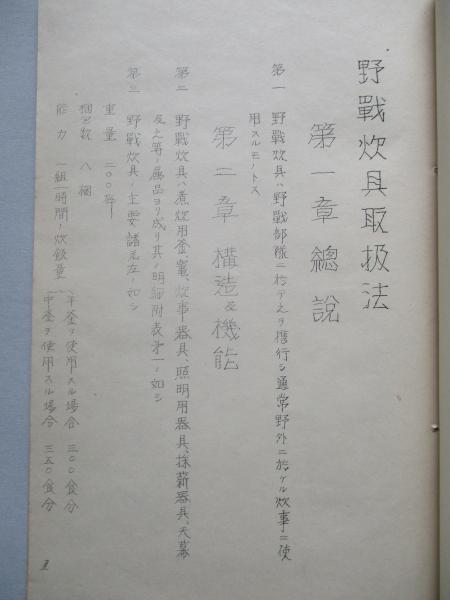 野戰炊具取扱法
第一章 總説
第一 野戰炊具ハ野戰部隊ニ於テ之ヲ携行シ通常野外ニ於ケル炊事ニ使
用スルモノトス
第二章 構造及機能
第二 野戰炊具ハ煮炊用釜、竈、炊事器具、照明用器具、採薪器具、天幕
及之等ノ属品ヨリ成リ其ノ明細附表第一ノ如シ
第三 野戰炊具ノ主要諸元左ノ如シ
重量 二〇〇瓩
梱包数 八梱
能力 一組一時間ノ炊飯量
平釜ヲ使用スル場合 三〇〇食分
中釜ヲ使用スル場合 三五〇食分
1